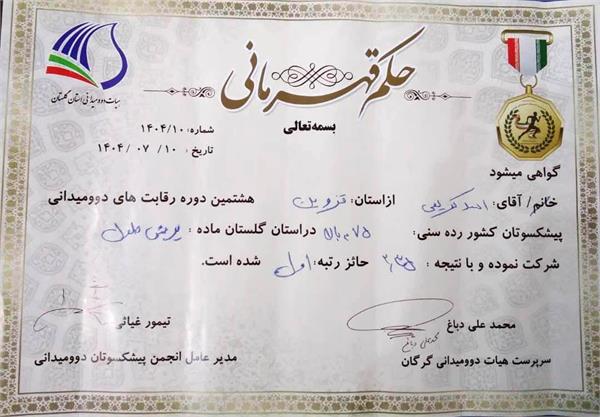 حکم قهرمانی
هیات دوومیدانی استان گلستان
بسمه‌تعالی
شماره: ۱۴۰۴/۱۰
تاریخ : ۱۰/ ۰۷ /۱۴۰۴
گواهی میشود
خانم/ آقای: اسد کریمی ازاستان: قزوین هشتمین دوره رقابت های دوومیدانی
پیشکسوتان کشور رده سنی: دراستان گلستان ماده : پرش طول
شرکت نموده و با نتیجه : حائز رتبه: اول شده است.
محمد علی دباغ
سرپرست هیات دوومیدانی گرگان
تیمور غیاثی
مدیر عامل انجمن پیشکسوتان دوومیدانی